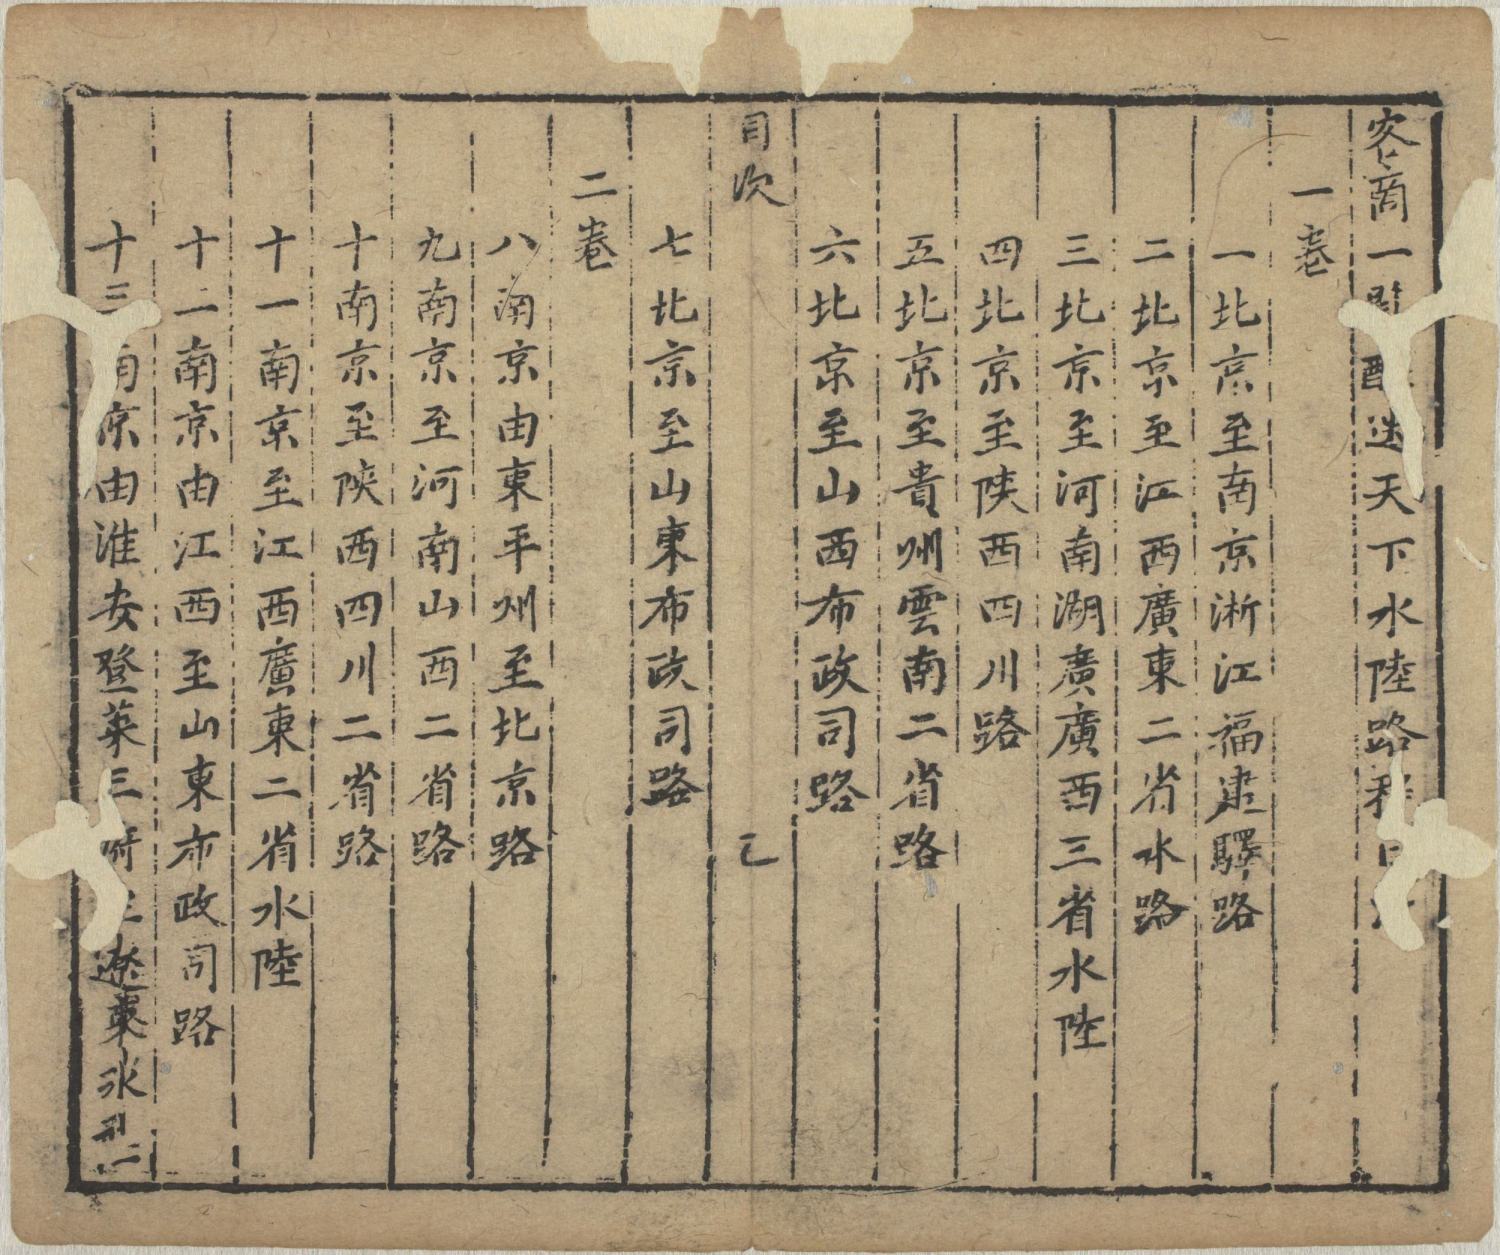 客商一醒迷天下水陸路程
一卷
一北京至南京浙江福建驛路
二北京至江西廣東二省水路
三北京至河南湖廣廣西三省水陸
四北京至陝西四川路
五北京至貴州雲南二省路
六北京至山西布政司路
目次
七北京至山東布政司路
二卷
八南京由東平州至北京路
九南京至河南山西二省路
十南京至陝西四川二省路
十一南京至江西廣東二省水陸
十二南京由江西至山東布政司路
十三南京由淮安登萊三府至遼東水